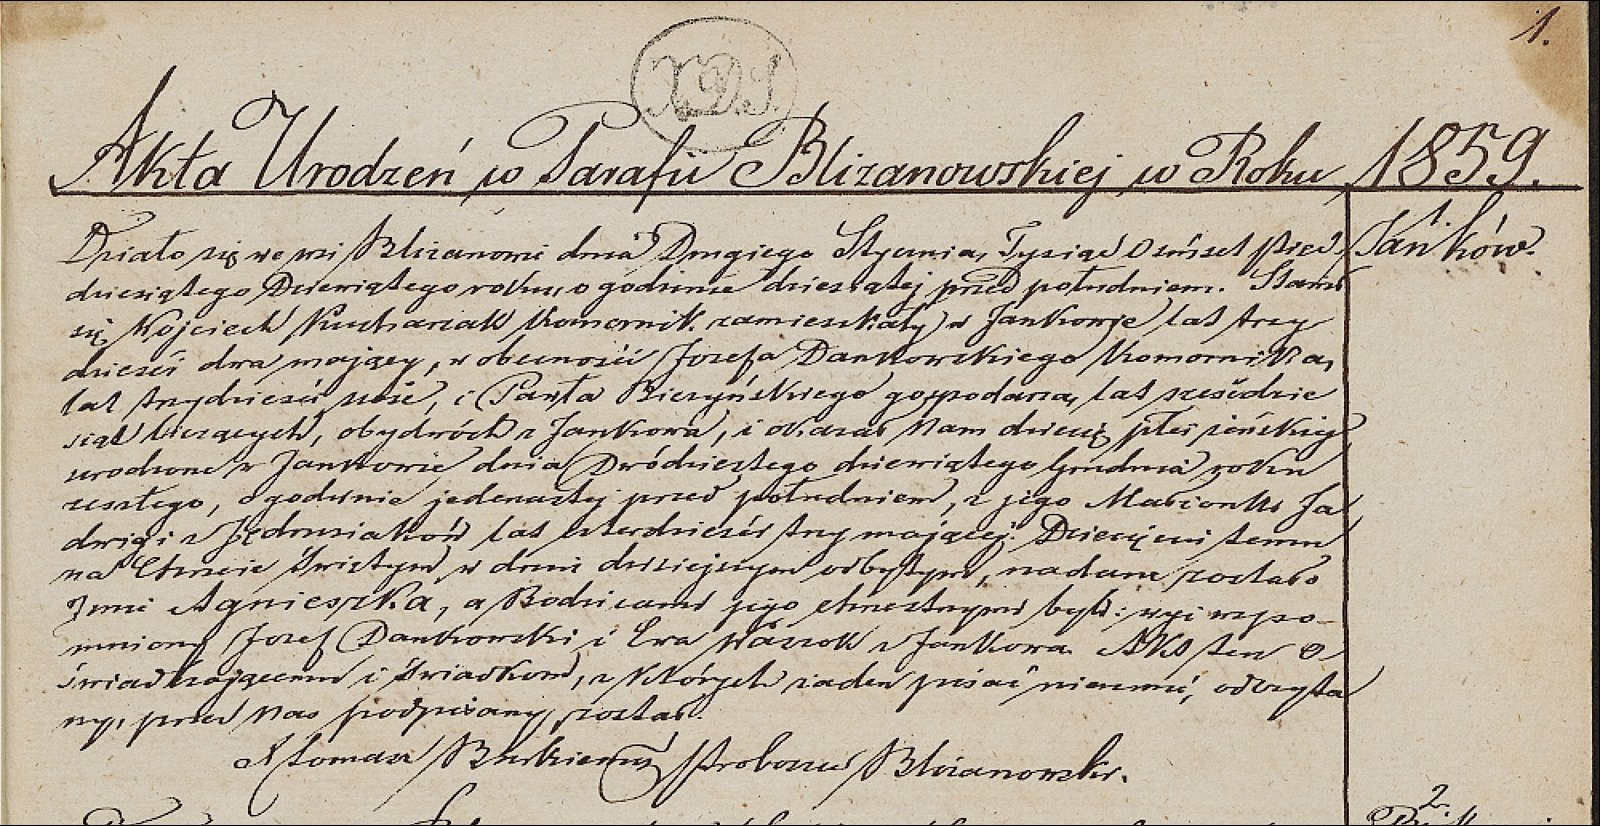 1.
X.D.S.
Akta Urodzeń w Parafii Blizanowskiej w Roku 1859.
1.
Jańków.
Działo się we wsi Blizanowie dnia Drugiego Stycznia, Tysiąc Osmset pięć
dziesiątego Dziewiątego roku, o godzinie dziesiątej przed południem. Stawił
się Wojciech Kucharzak komornik zamieszkały w Jankowie lat trzy
dzieści dwa mający, w obecności Jozefa Dankowskiego komornika,
lat trzydzieści sześć, i Pawła Bieżyńskiego gospodarza, lat sześćdzie
siąt liczących, obydwóch z Jankowa, i okazał Nam dziecię płci żeńskiej
urodzone w Jankowie dnia Dwódziestego dziewiątego Grudnia roku
zeszłego, o godzinie jedenastej przed południem, z jego Małżonki Ja
dwigi z Jędrusiaków lat czterdzieści trzy mającej. Dziecięciu temu
na Chrzcie Świętym w dniu dzisiejszym odbytym, nadane zostało
Imie Agnieszka, a Rodzicami jego chrzestnymi byli: wyi wspo-
mniony Jozef Dankowski i Ewa z Jankowa. Akt ten O
świadczającemu i Świadkom, z których żaden pisać nieumie, odczyta
ny, przez Nas podpisany został.
X Tomasz Proboszcz Blizanowski.
2.